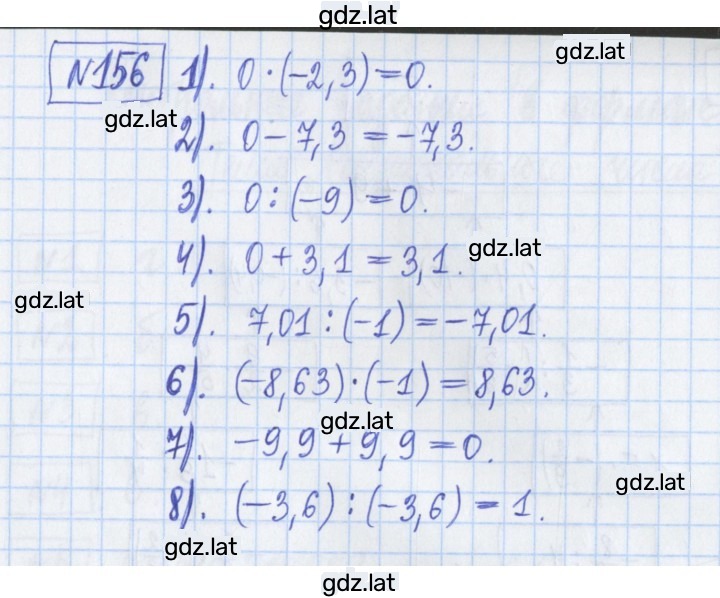 gdz.lat
N156 1). 0 · (-2,3) = 0.
gdz.lat
gdz.lat
2). 0 - 7,3 = -7,3.
3). 0 : (-9) = 0.
4). 0 + 3,1 = 3,1.
gdz.lat
gdz.lat
5). 7,01 : (-1) = -7,01.
6). (-8,63) · (-1) = 8,63.
gdz.lat
7). -9,9 + 9,9 = 0.
gdz.lat
8). (-3,6) : (-3,6) = 1.
gdz.lat
gdz.lat